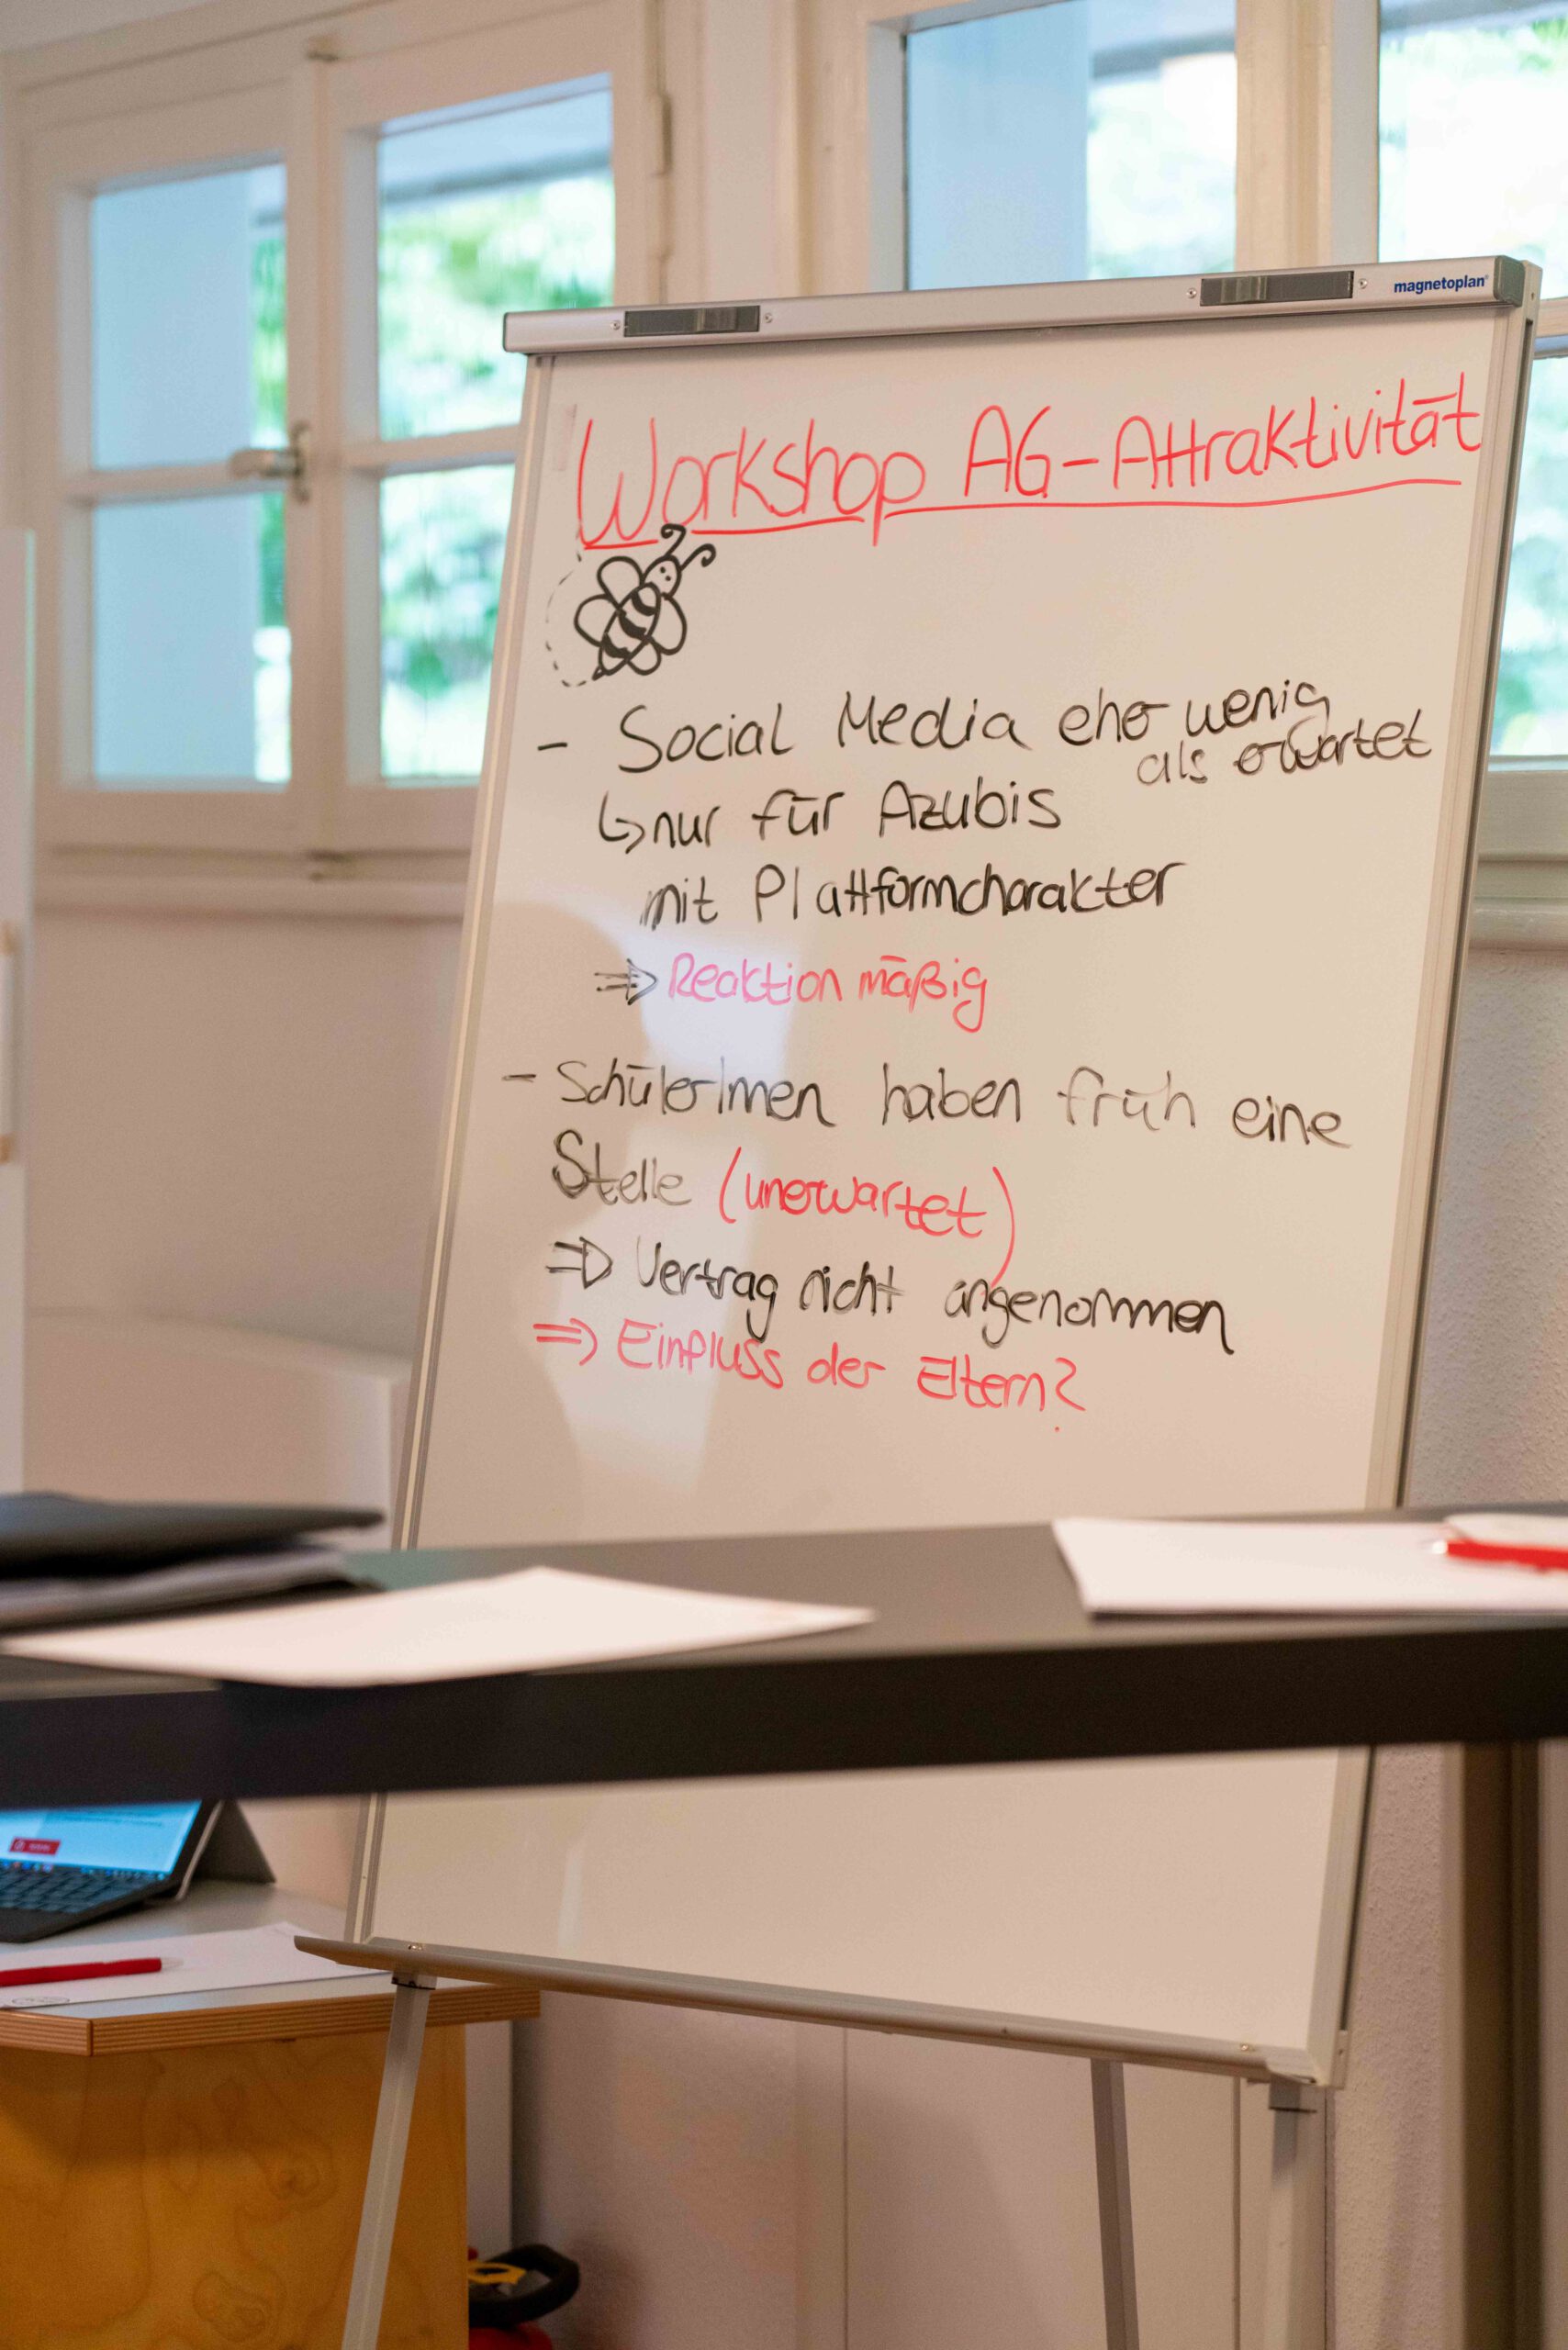 magnetoplan
Workshop AG-Attraktivität
- Social Media eher wenig
als erwartet
↳ nur für Azubis
mit Plattformcharakter
⇒ Reaktion mäßig
- SchülerInnen haben früh eine
Stelle (unerwartet)
⇒ Vertrag nicht angenommen
⇒ Einfluss der Eltern?